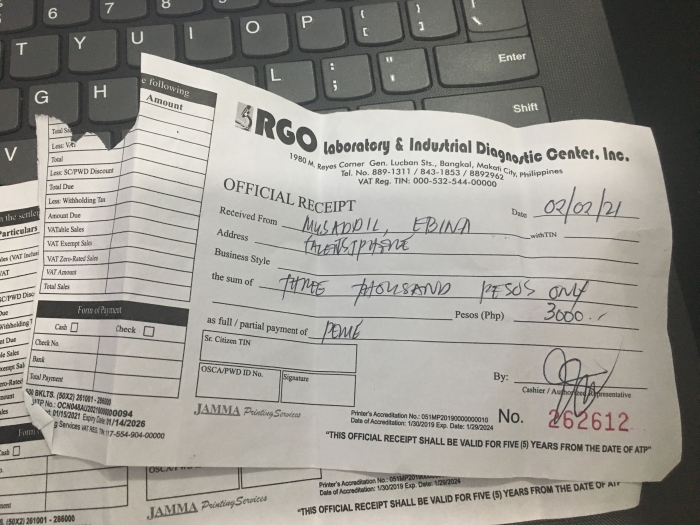 6 7 8
T Y U I O P { [ } ]
G H L : ; " ' Enter
V Shift
e following
Amount
Total Sa
Less: VA
Total
Less: SC/PWD Discount
Total Due
Less: Withholding Tax
Amount Due
VATable Sales
VAT Exempt Sale
VAT Zero-Rated Sales
VAT Amount
Total Sales
Form of Payment
Cash Check
Check No.
Bank
Total Payment
BKLTS. (50X2) 261001 - 286000
ATP No.: OCN048AU20210000000094
01/15/2021 Expiry Date: 01/14/2026
g Services VAT REG. TIN 117-554-904-00000
ARGO Laboratory & Industrial Diagnostic Center, Inc.
1980 M. Reyes Corner Gen. Lucban Sts., Bangkal, Makati City, Philippines
Tel. No. 889-1311 / 843-1853 / 8892962
VAT Reg. TIN: 000-532-544-00000
OFFICIAL RECEIPT
Date 02/02/21
Received From MUSADDIL, EBINA with TIN
Address TALENTSPHERE
Business Style
the sum of THREE THOUSAND PESOS ONLY
Pesos (Php) 3000.-
as full / partial payment of PEME
Sr. Citizen TIN
OSCA/PWD ID No. Signature
By:
Cashier / Authorized Representative
JAMMA Printing Services
Printer's Accreditation No.: 051MP20190000000010
Date of Accreditation: 1/30/2019 Exp. Date: 1/29/2024
No. 262612
"THIS OFFICIAL RECEIPT SHALL BE VALID FOR FIVE (5) YEARS FROM THE DATE OF ATP"
n the settle
Particulars
les (VAT Inclus
VAT
SC/PWD Disc
Due
Withholding T
nt Due
le Sales
xempt Sal
ero-Rated
mount
Form
Cash
(50X2) 261001 - 286000
JAMMA Printing Services
Printer's Accreditation No.: 051MP2019
Date of Accreditation: 1/30/2019 Exp. Date: 1/29/2024
"THIS OFFICIAL RECEIPT SHALL BE VALID FOR FIVE (5) YEARS FROM THE DATE OF ATP